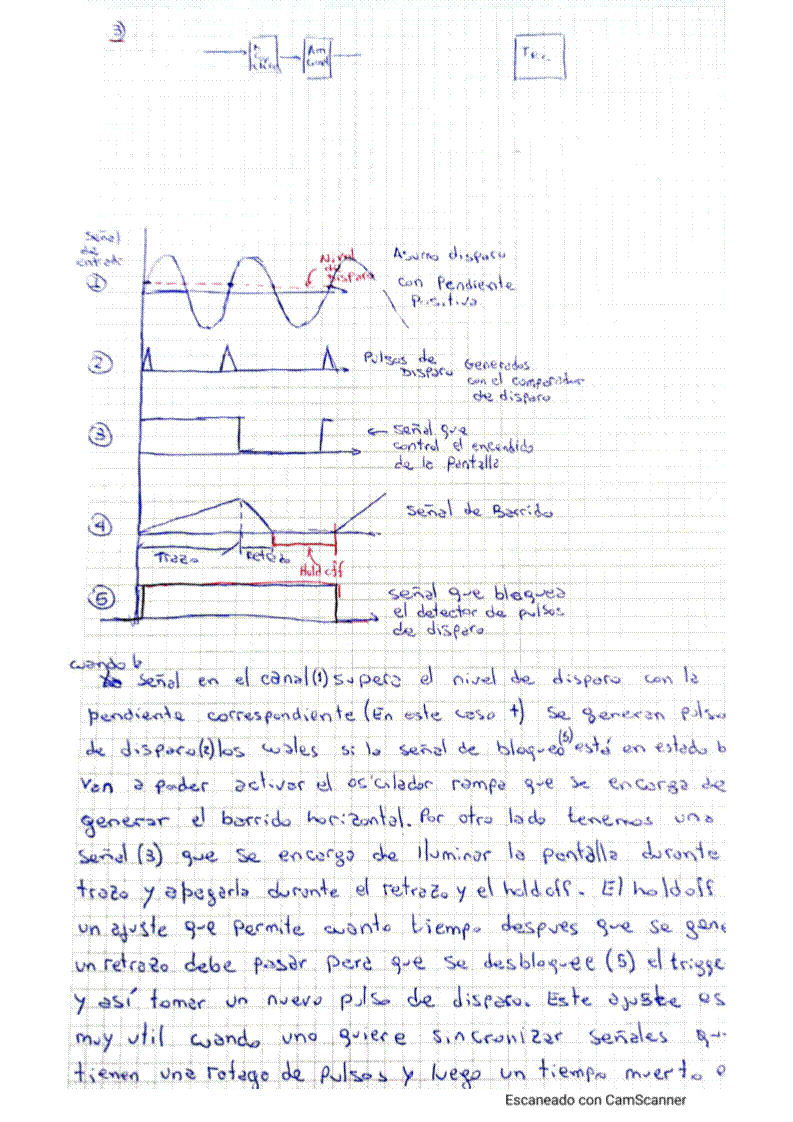 3)
Am
T.R.C.
Señal
de
Entrada
Nivel
de
Disparo
Asumo disparo
con Pendiente
Positiva
1
2
Pulsos de
Disparo
Generados
con el comparador
de disparo
3
señal que
control el encendido
de la Pantalla
4
señal de Barrido
Trazo
Retrazo
Hold off
5
señal que bloquea
el detector de pulsos
de disparo
cuando la
señal en el canal (1) supera el nivel de disparo con la
pendiente correspondiente (En este caso +) se generan pulso
de disparo (2) los cuales si la señal de bloqueo (5) está en estado b
van a poder activar el oscilador rampa que se encarga de
generar el barrido horizontal. Por otro lado tenemos una
señal (3) que se encarga de iluminar la pantalla durante
trazo y apagarla durante el retrazo y el holdoff. El holdoff
un ajuste que permite cuanto tiempo despues que se gene
un retrazo debe pasar para que se desbloquee (5) el trigge
y así tomar un nuevo pulso de disparo. Este ajuste es
muy util cuando uno quiere sincronizar señales qu
tienen una rafaga de pulsos y luego un tiempo muerto
Escaneado con CamScanner